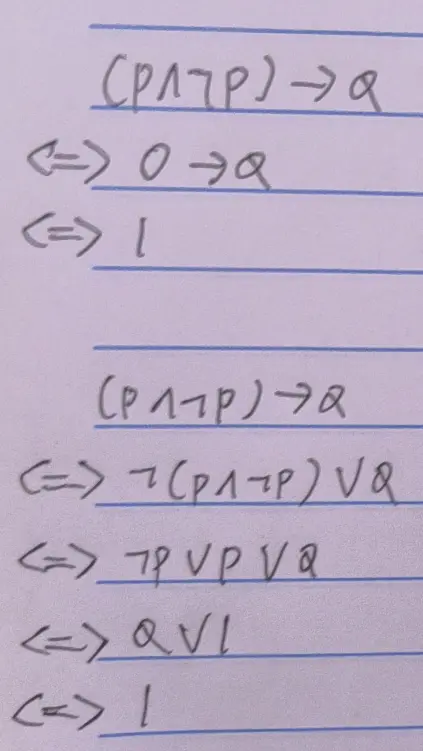 (P∧¬P)→Q
<=> 0→Q
<=> 1
(P∧¬P)→Q
<=> ¬(P∧¬P)∨Q
<=> ¬P∨P∨Q
<=> Q∨1
<=> 1